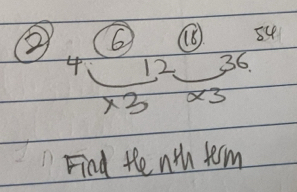 2 6 18 54
4 12 36
×3 ×3
Find the nth term